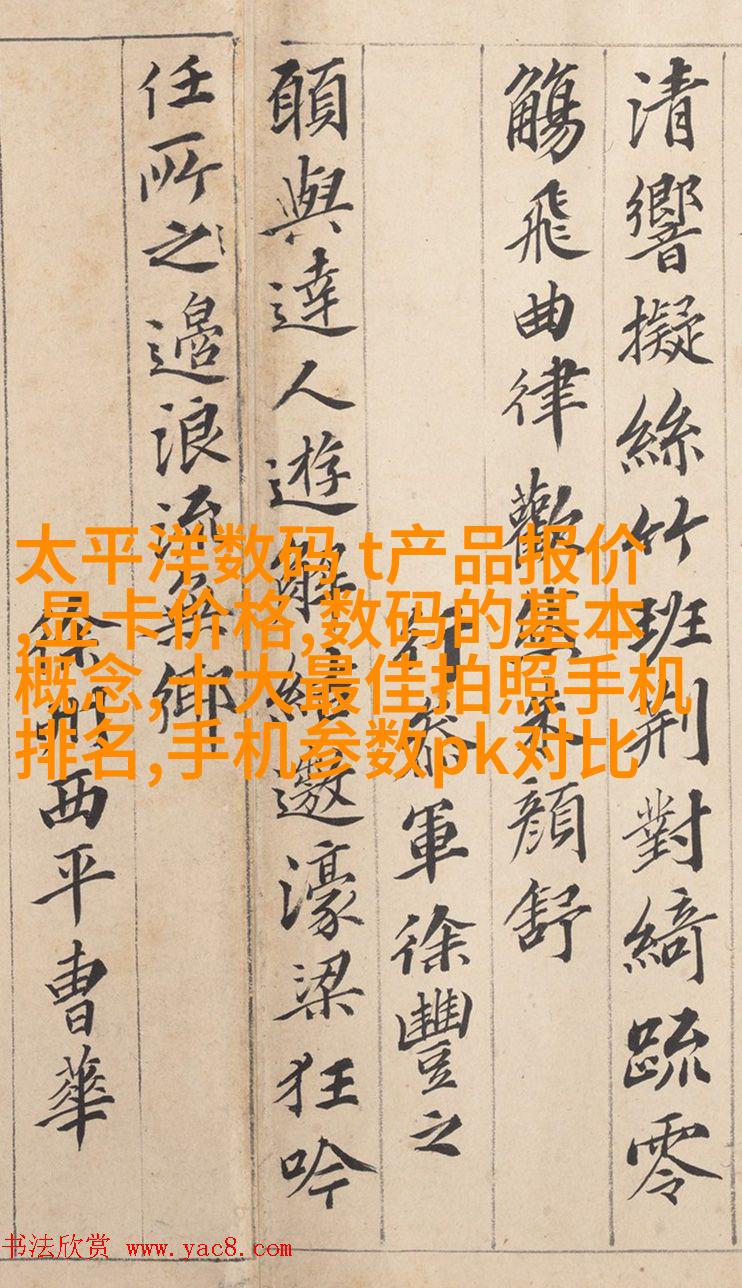 清響擬絲竹班荆對綺疏零
觴飛曲律歡然朱顏舒
行參軍徐豐之
願與達人遊解結遨濠梁狂吟
任所之邉浪流無鄉
徐州西平曹華
太平洋数码 t产品报价
,显卡价格,数码的基本
概念,十大最佳拍照手机
排名,手机参数pk对比
书法欣赏 www.yac8.com